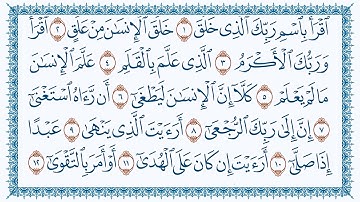 ٱقْرَأْ بِٱسْمِ رَبِّكَ ٱلَّذِى خَلَقَ ١ خَلَقَ ٱلْإِنسَٰنَ مِنْ عَلَقٍ ٢ ٱقْرَأْ
وَرَبُّكَ ٱلْأَكْرَمُ ٣ ٱلَّذِى عَلَّمَ بِٱلْقَلَمِ ٤ عَلَّمَ ٱلْإِنسَٰنَ
مَا لَمْ يَعْلَمْ ٥ كَلَّآ إِنَّ ٱلْإِنسَٰنَ لَيَطْغَىٰٓ ٦ أَن رَّءَاهُ ٱسْتَغْنَىٰٓ
٧ إِنَّ إِلَىٰ رَبِّكَ ٱلرُّجْعَىٰٓ ٨ أَرَءَيْتَ ٱلَّذِى يَنْهَىٰ ٩ عَبْدًا
إِذَا صَلَّىٰٓ ١٠ أَرَءَيْتَ إِن كَانَ عَلَى ٱلْهُدَىٰٓ ١١ أَوْ أَمَرَ بِٱلتَّقْوَىٰٓ ١٢